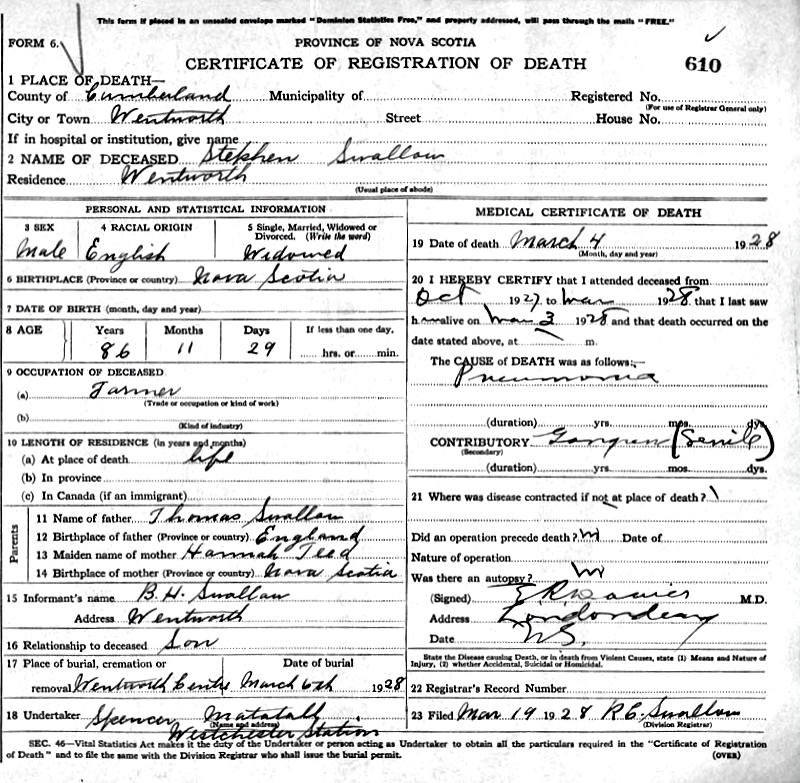 This form if placed in an unsealed envelope marked "Dominion Statistics Free," and properly addressed, will pass through the mails "FREE."
FORM 6.
PROVINCE OF NOVA SCOTIA
CERTIFICATE OF REGISTRATION OF DEATH 610
1 PLACE OF DEATH—
County of Cumberland Municipality of Registered No.
(For use of Registrar General only)
City or Town Wentworth Street House No.
If in hospital or institution, give name
2 NAME OF DECEASED Stephen Swallow
Residence Wentworth
(Usual place of abode)
PERSONAL AND STATISTICAL INFORMATION
3 SEX 4 RACIAL ORIGIN 5 Single, Married, Widowed or Divorced. (Write the word)
Male English Widowed
6 BIRTHPLACE (Province or country) Nova Scotia
7 DATE OF BIRTH (month, day and year)
8 AGE Years Months Days If less than one day,
86 11 29 hrs. or min.
9 OCCUPATION OF DECEASED
(a) Farmer
(Trade or occupation or kind of work)
(b)
(Kind of industry)
10 LENGTH OF RESIDENCE (in years and months)
(a) At place of death life
(b) In province
(c) In Canada (if an immigrant)
Parents
11 Name of father Thomas Swallow
12 Birthplace of father (Province or country) England
13 Maiden name of mother Hannah Teed
14 Birthplace of mother (Province or country) Nova Scotia
15 Informant's name B. H. Swallow
Address Wentworth
16 Relationship to deceased Son
17 Place of burial, cremation or Date of burial
removal Wentworth Centre March 6th 1928
18 Undertaker Spencer Matatall
(Name and address)
Westchester Station
MEDICAL CERTIFICATE OF DEATH
19 Date of death March 4 1928
(Month, day and year)
20 I HEREBY CERTIFY that I attended deceased from
Oct 1927 to Mar 1928 that I last saw
him alive on Mar 3 1928 and that death occurred on
date stated above, at m.
The CAUSE of DEATH was as follows:—
Pneumonia
(duration) yrs. mos. dys.
CONTRIBUTORY Gangren (Senile)
(Secondary)
(duration) yrs. mos. dys.
21 Where was disease contracted if not at place of death?
Did an operation precede death? Date of
Nature of operation
Was there an autopsy?
(Signed) M.D.
Address Londonderry
Date N.S.
State the Disease causing Death, or in death from Violent Causes, state (1) Means and Nature of
Injury, (2) whether Accidental, Suicidal or Homicidal.
22 Registrar's Record Number
23 Filed Mar 19 1928 R C. Swallow
(Division Registrar)
SEC. 46—Vital Statistics Act makes it the duty of the Undertaker or person acting as Undertaker to obtain all the particulars required in the "Certificate of Registration
of Death" and to file the same with the Division Registrar who shall issue the burial permit. (OVER)